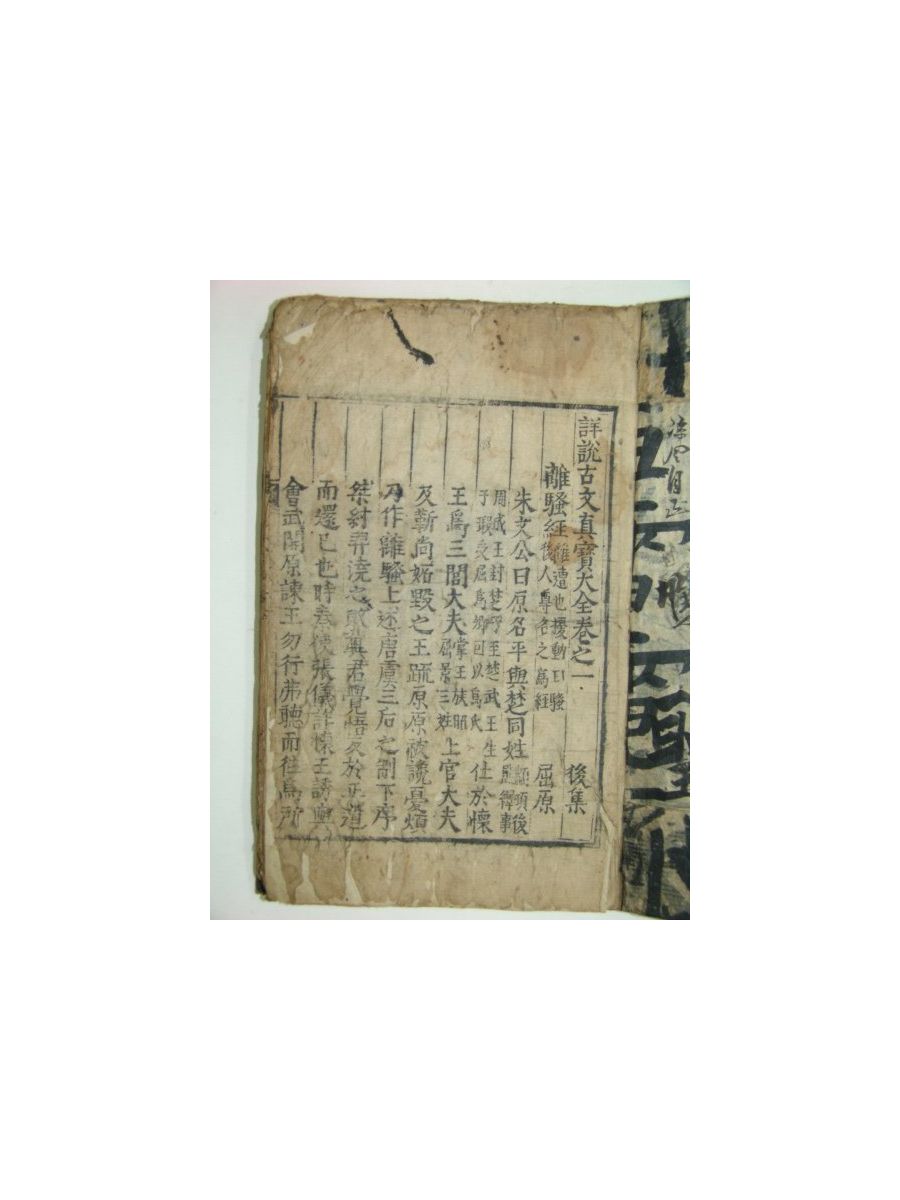 詳說古文真寶大全卷之一 後集
離騷經 離遭也擾動曰騷後人尊名之爲經 屈原
朱文公曰原名平與楚同姓 顓頊後熊繹事
周成王封楚 至楚武王生子瑕受屈爲卿因以爲氏 仕於懷
王爲三閭大夫 掌王族昭屈景三姓 上官大夫
及靳尙妬毀之王疏原原被讒憂煩
乃作離騷上述唐虞三后之制下序
桀紂羿澆之敗冀君覺悟反於正道
而還已也時秦使張儀詐懷王誘與
會武關原諫王勿行弗聽而往爲所